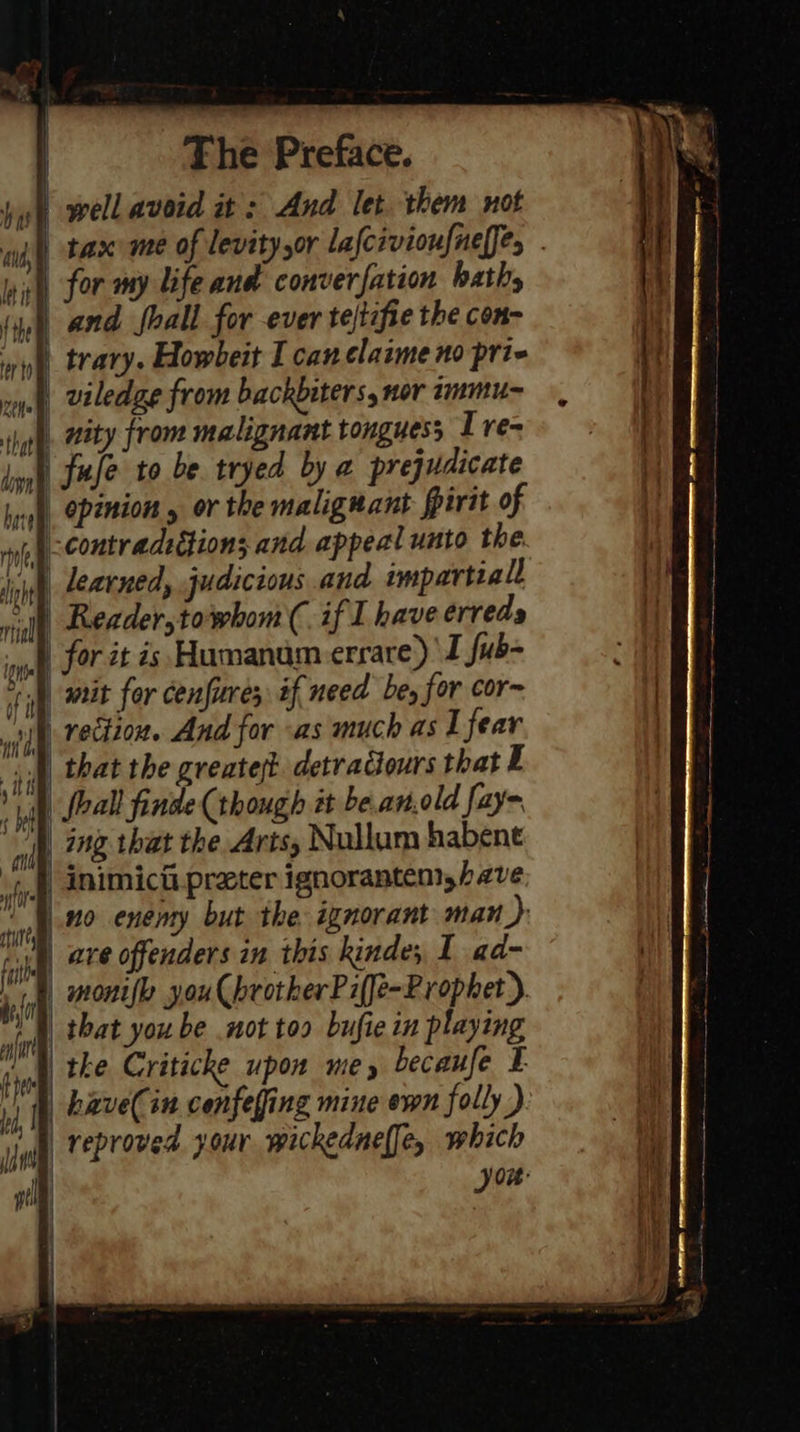 The Preface.
well avoid it : And let them not
tax me of levity, or laſciviouſneſſe,
for my life and converſation hath,
and ſhall for ever teſtifie the con-
trary. Howbeit I can claime no pri-
viledge from backbiters, nor immu-
nity from malignant tongues; I re-
fuſe to be tryed by a prejudicate
opinion, or the malignant ſpirit of
contradiction; and appeal unto the
learned, judicious and impartiall
Reader, to whom ( if I have erred,
for it is Humanum errare) I ſub-
mit for cenſure; if need be, for cor-
rection. And for as much as I fear
that the greateſt detractours that I
ſhall finde (though it be an old ſay-
ing that the Arts, Nullum habent
inimicū præter ignorantem, have
no enemy but the ignorant man)
are offenders in this kinde; I ad-
moniſh you (brother Piſſe-Prophet)
that you be not too buſie in playing
the Criticke upon me, becauſe I
have (in confeſſing mine own folly)
reproved your wickedneſſe, which
you